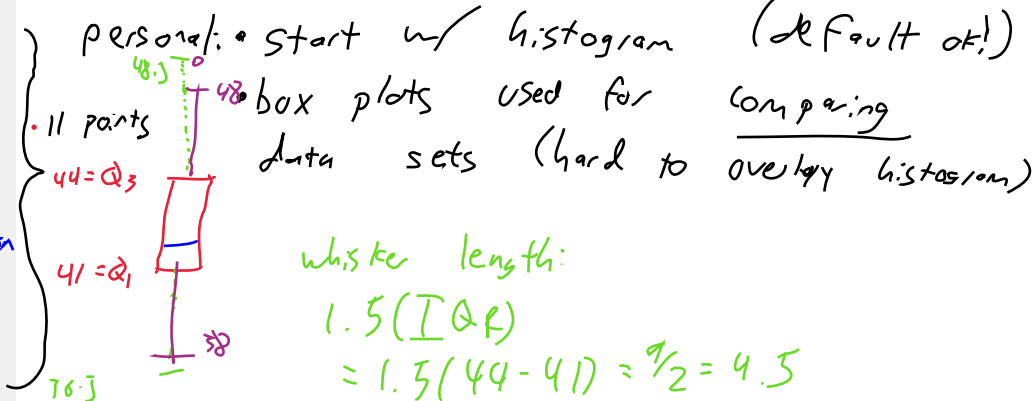 personal: • start w/ histogram (default ok!)
48.5
48 • box plots used for comparing
• 11 points
data sets (hard to overlay histogram)
44 = Q3
41 = Q1
whisker length:
1.5(IQR)
38
= 1.5(44-41) = 9/2 = 4.5
36.5